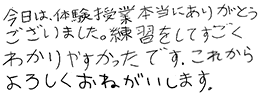 今日は、体験授業本当にありがとう
ございました。練習をしてすごく
わかりやすかったです。これから
よろしくおねがいします。